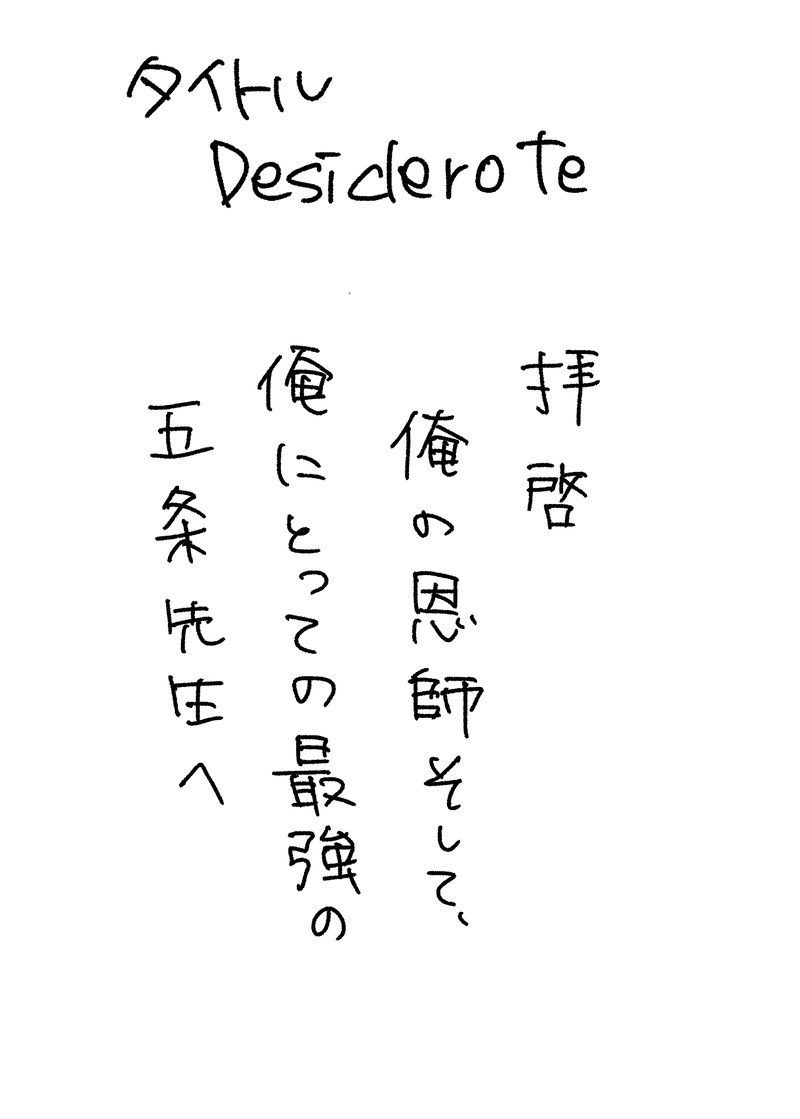 タイトル
Desiderote
拝啓
俺の恩師そして、
俺にとっての最強の
五条先生へ